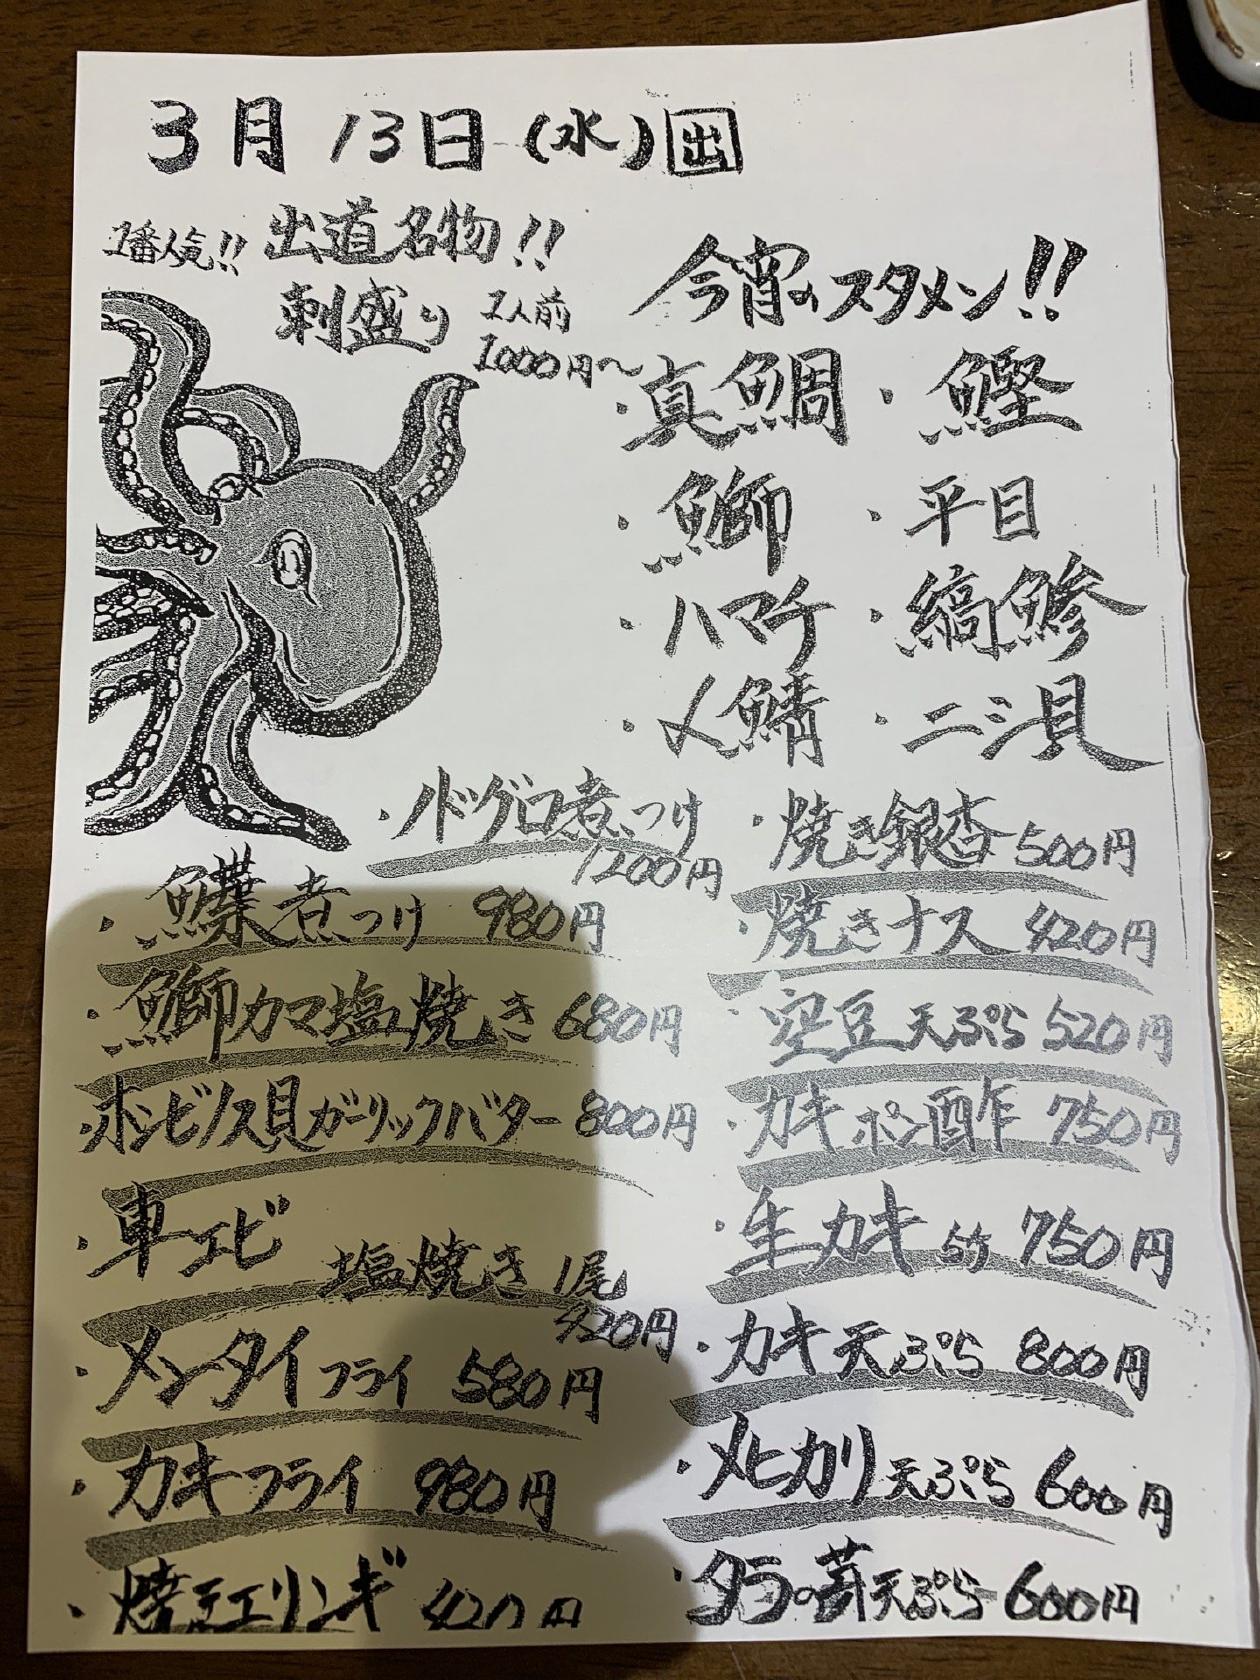 3月13日(水)出
1番人気!! 出道名物!!
刺盛り 1人前
1000円〜
今宵のスタメン!!
・真鯛 ・鰹
・鰤 ・平目
・ハマチ ・縞鯵
・〆鯖 ・ニシ貝
・ノドグロ煮つけ
1200円
・鰈煮つけ 980円
・鰤カマ塩焼き 680円
・ホンビノス貝ガーリックバター 800円
・車エビ
塩焼き 1尾
420円
・メンタイフライ 580円
・カキフライ 980円
・焼きエリンギ 420円
・焼き銀杏 500円
・焼きナス 420円
・空豆天ぷら 520円
・カキポン酢 750円
・生カキ 5ケ 750円
・カキ天ぷら 800円
・メヒカリ天ぷら 600円
・タラの芽天ぷら 600円